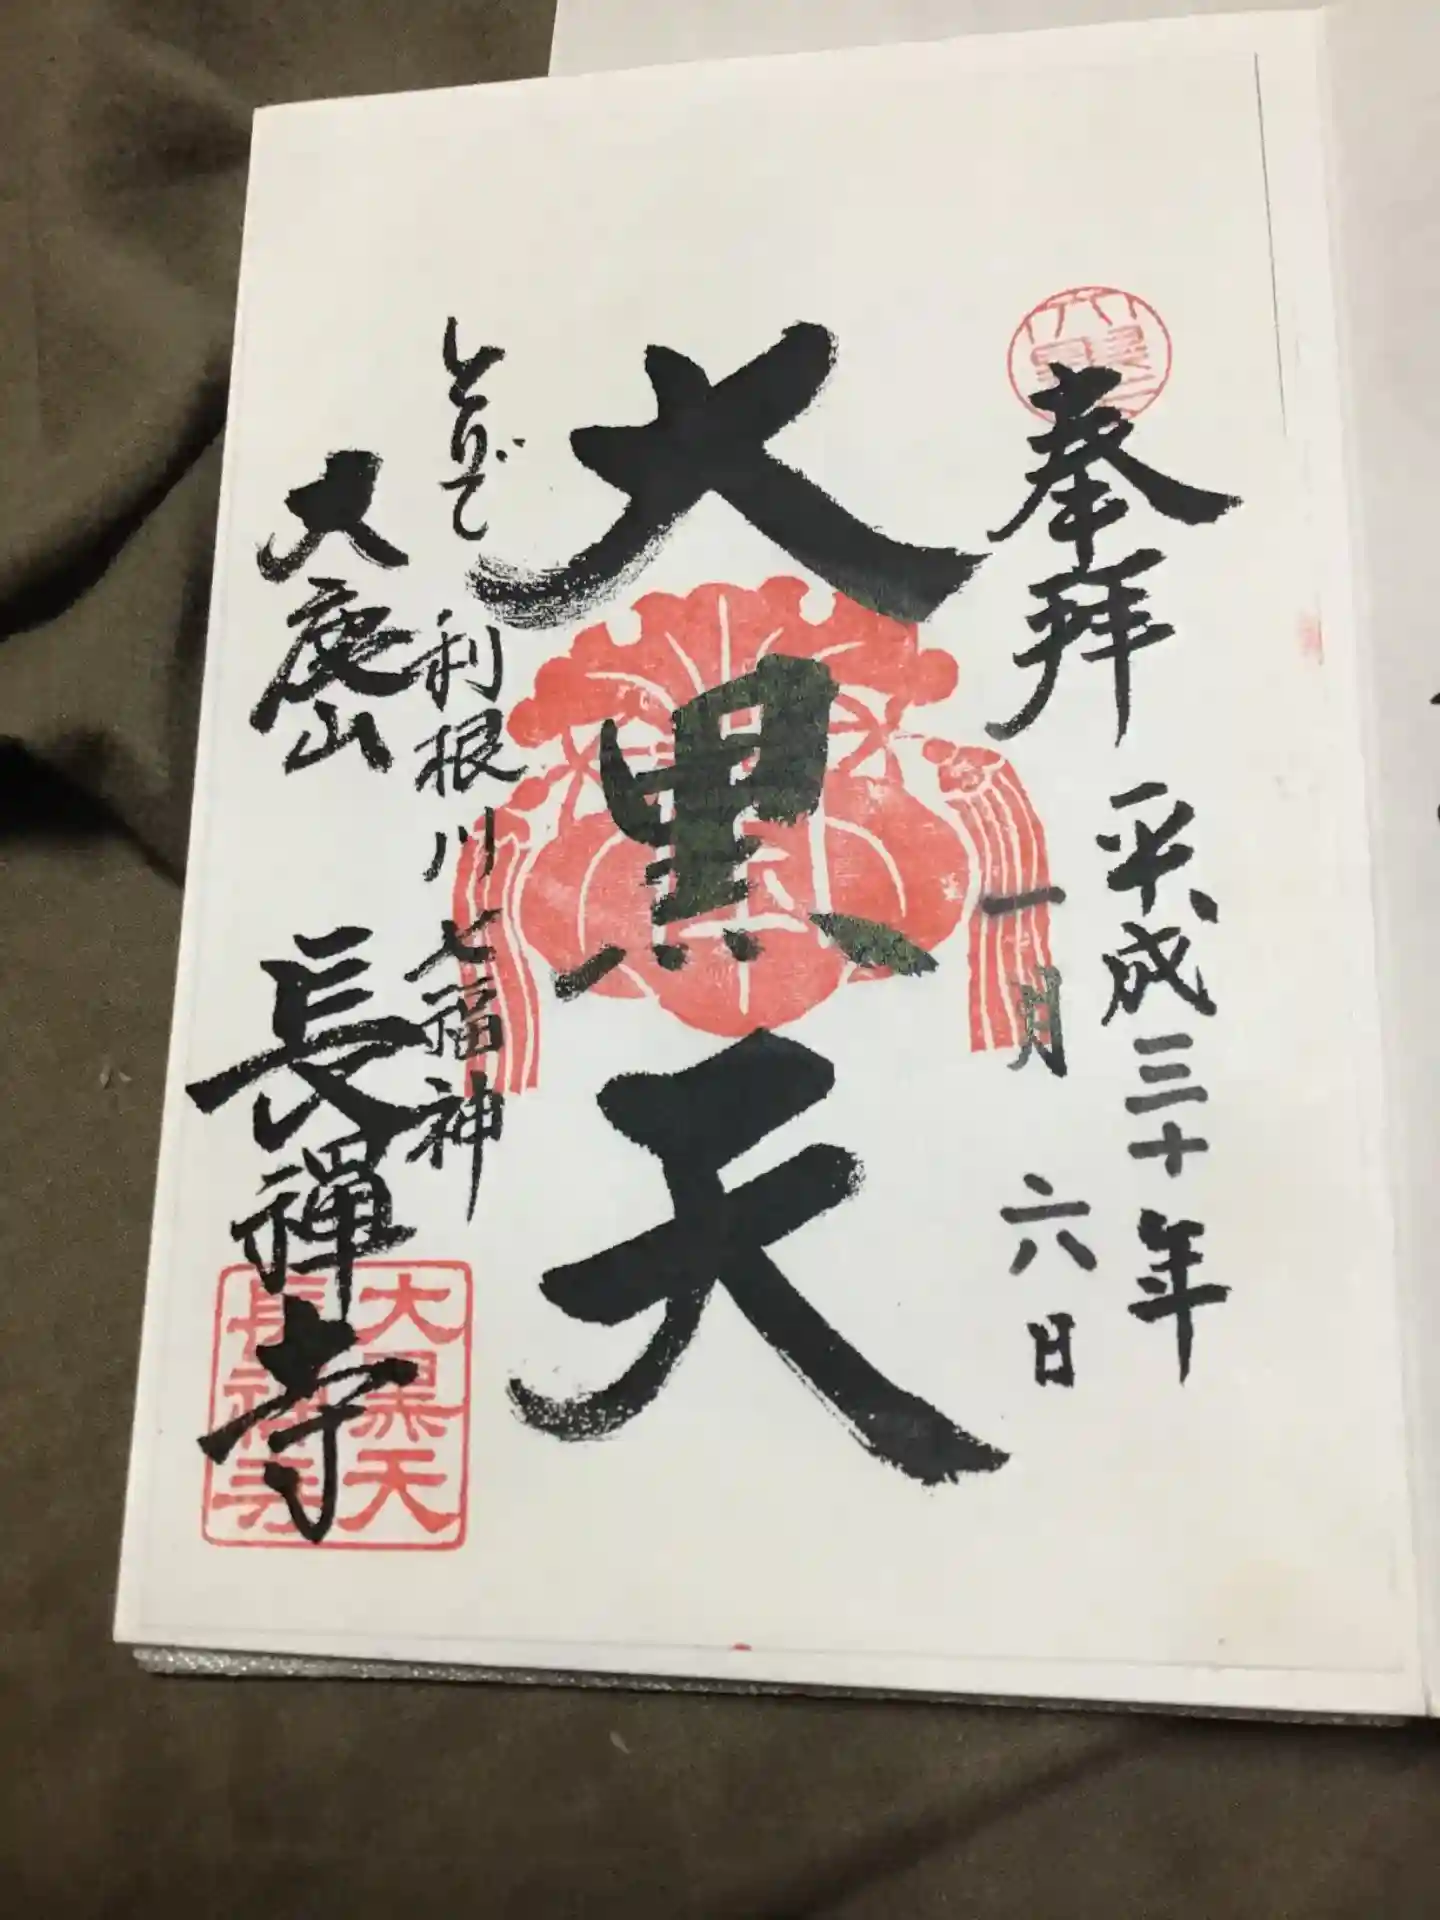 奉拝
平成三十年
一月六日
大黒天
とりで
利根川七福神
大鹿山
長禅寺
大黒天
長禅寺